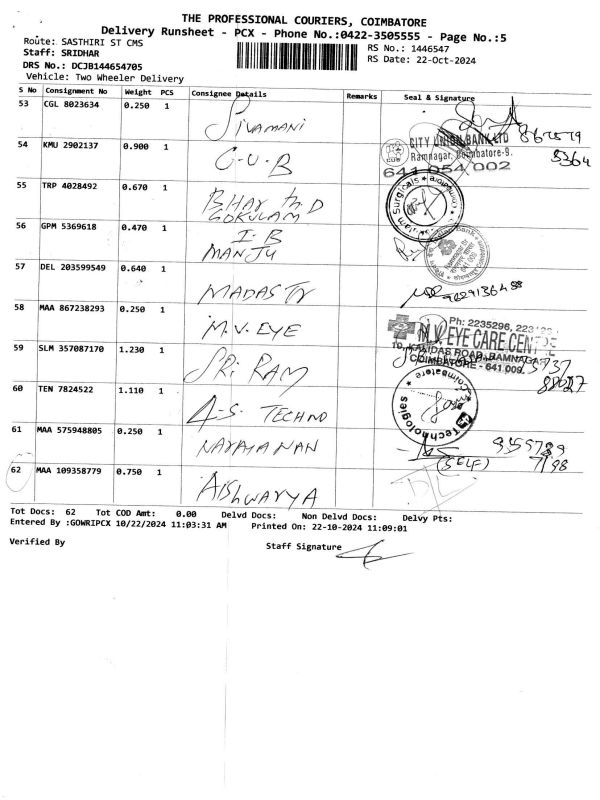 THE PROFESSIONAL COURIERS, COIMBATORE
Delivery Runsheet - PCX - Phone No.:0422-3505555 - Page No.:5
Route: SASTHIRI ST CMS
RS No.: 1446547
Staff: SRIDHAR
RS Date: 22-Oct-2024
DRS No.: DCJB144654705
Vehicle: Two Wheeler Delivery
S No Consignment No Weight PCS Consignee Details Remarks Seal & Signature
53 CGL 8023634 0.250 1 SIVAMANI
54 KMU 2902137 0.900 1 C-U-B
CITY UNION BANK LTD
Ramnagar, Coimbatore-9.
641 054 002
55 TRP 4028492 0.670 1 BHAY
GOKULAM
Surgicals
56 GPM 5369618 0.470 1 I-B
MANJU
57 DEL 203599549 0.640 1 MADASTY
58 MAA 867238293 0.250 1 M.V. EYE
Ph: 2235296,
M.V. EYE CARE CENTRE
10, KALIDAS ROAD, RAMNAGAR
COIMBATORE - 641 009.
59 SLM 357087170 1.230 1 SRI RAM
60 TEN 7824522 1.110 1 A-S. TECHNO
Technologies Coimbatore
61 MAA 575948805 0.250 1 NARAYANAN
(SELF)
62 MAA 109358779 0.750 1 AISHWARYA
D/L
Tot Docs: 62 Tot COD Amt: 0.00 Delvd Docs: Non Delvd Docs: Delvy Pts:
Entered By :GOWRIPCX 10/22/2024 11:03:31 AM Printed On: 22-10-2024 11:09:01
Verified By Staff Signature